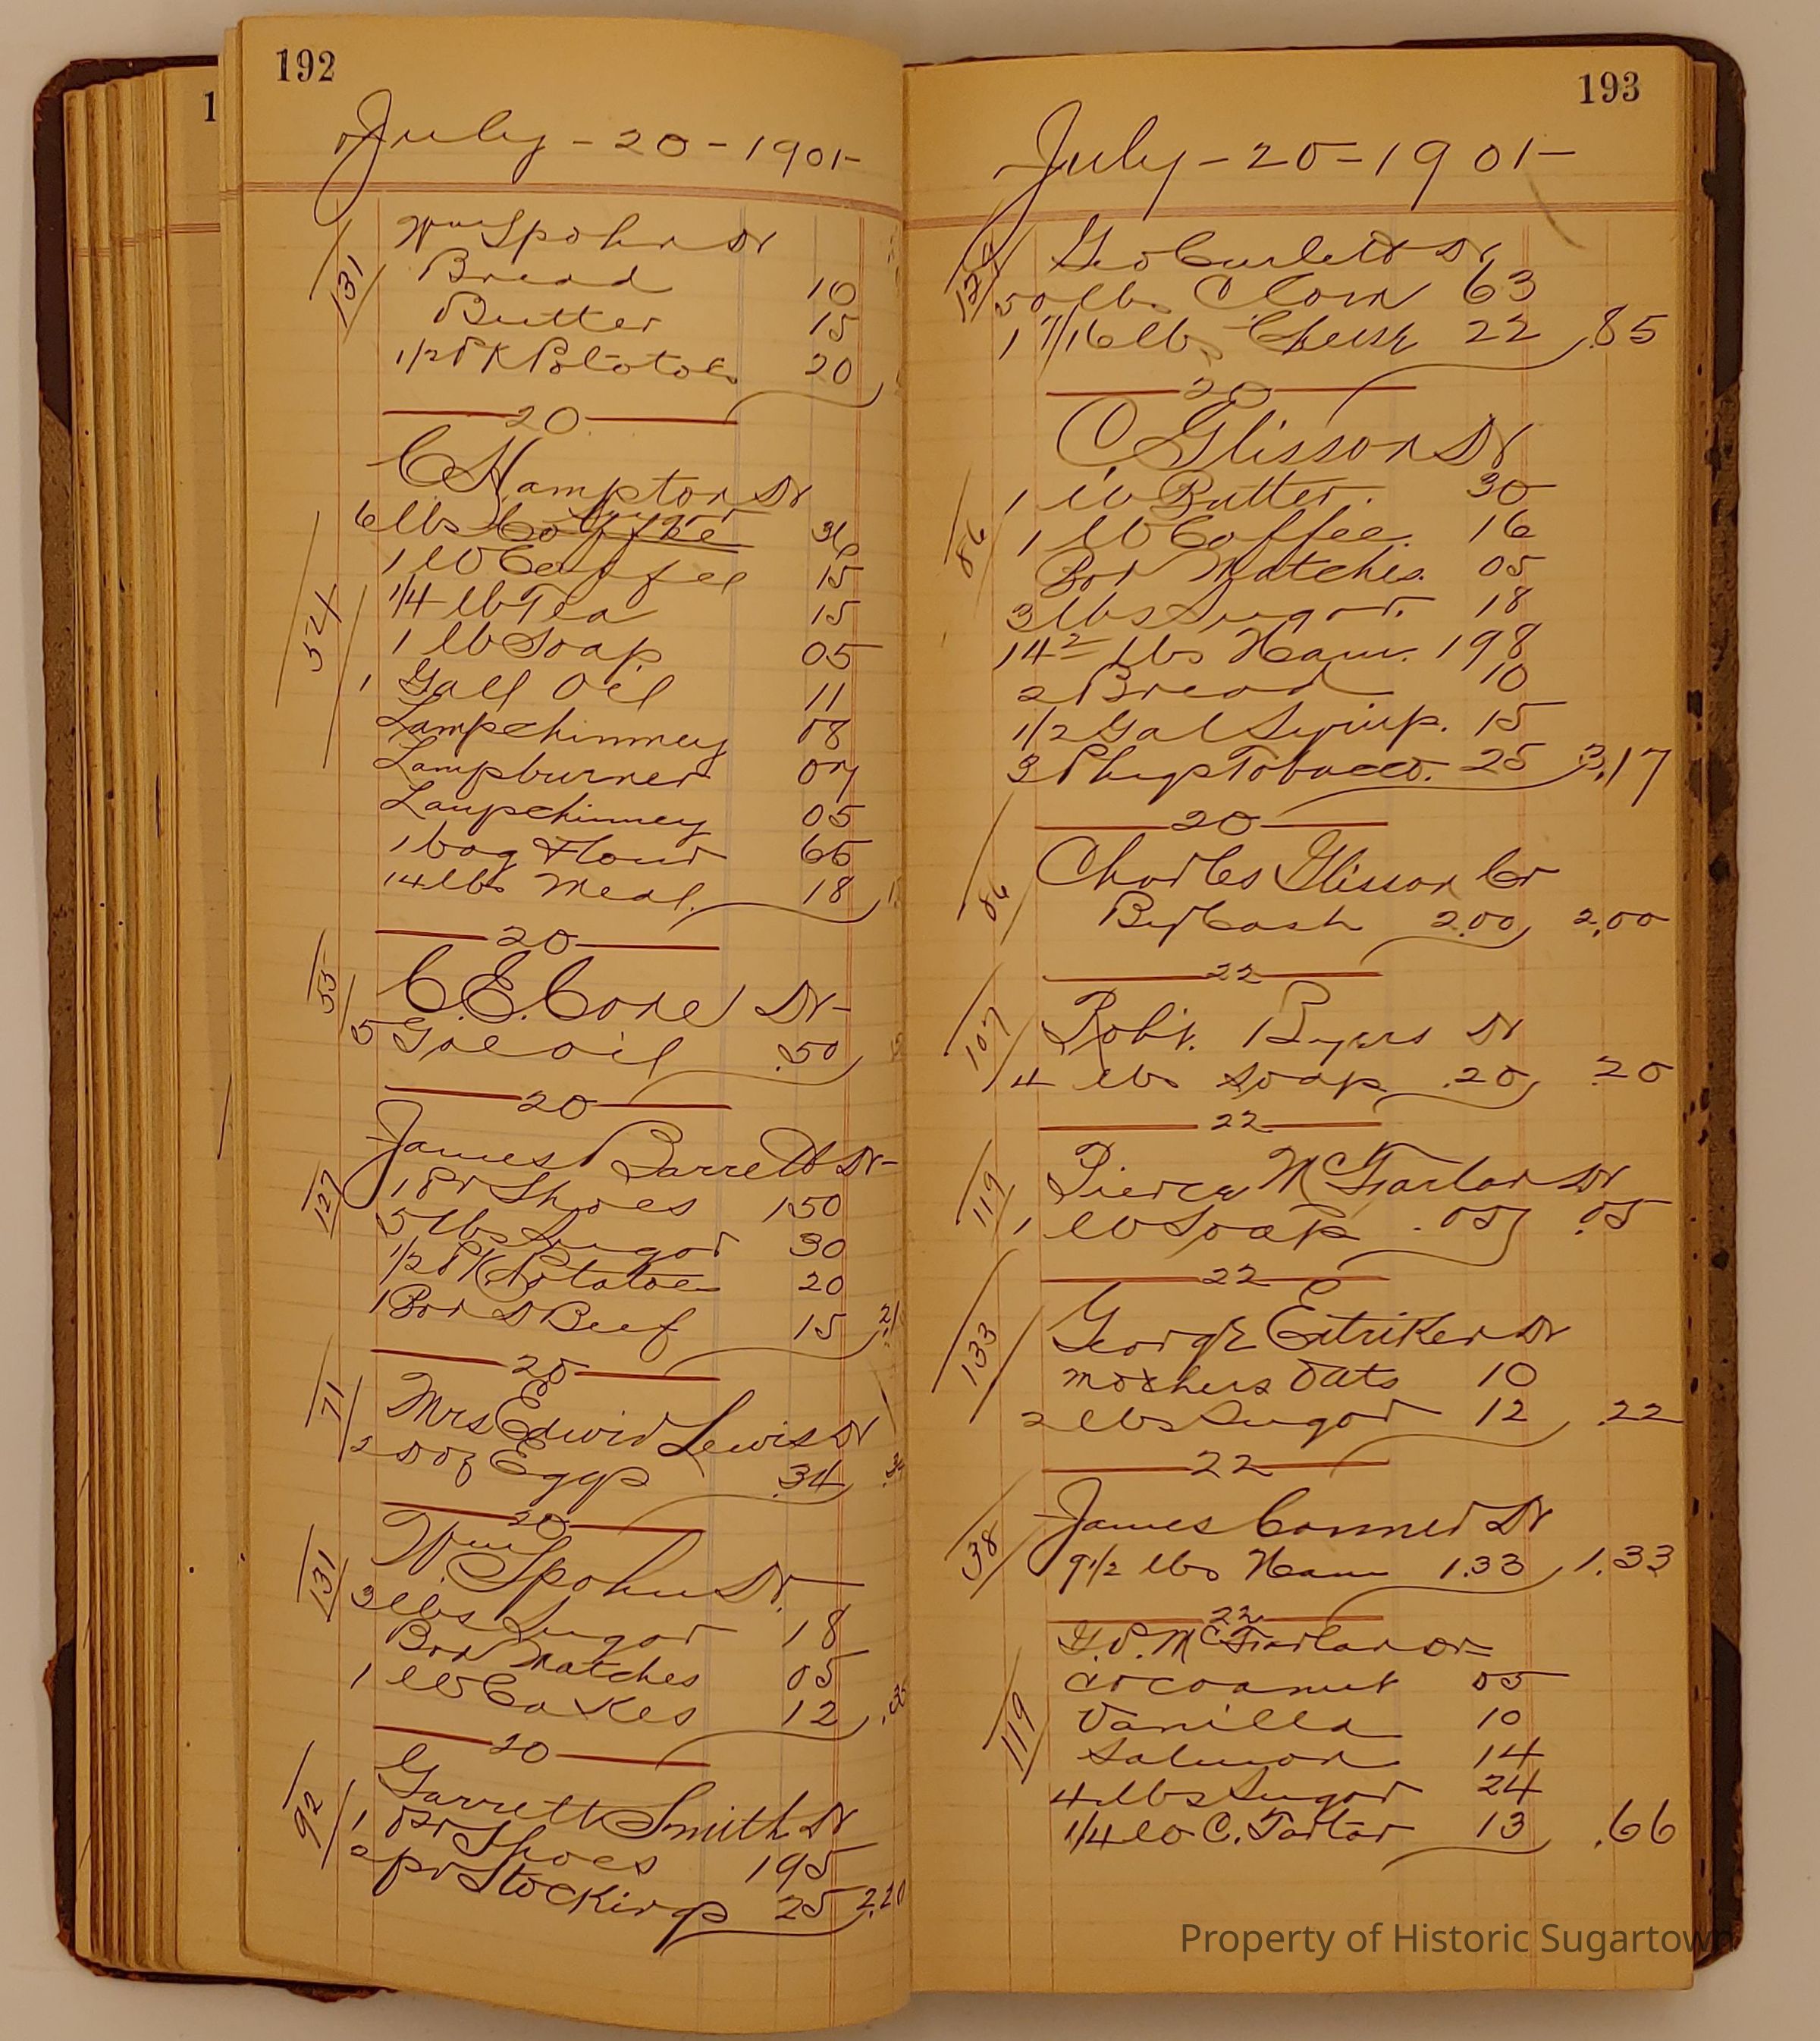 192
July - 20 - 1901 -
Wm Spohn Dr
131
Bread 10
Butter 15
1/2 PK Potatoes 20
20
C Hampton Dr
Sugar
6 lbs Coffee 36
1 lb Coffee 15
54
1/4 lb Tea 15
1 lb Soap 05
1 Gall Oil 11
Lampchimney 08
Lampburner 07
Lampchimney 05
1 bag Flour 65
14 lbs Meal. 18
20
55
C. E. Cone Dr -
5 Gal oil .50
20
James Barrett Dr -
127
1 Pr Shoes 150
5 lbs Sugar 30
1/2 PK Potatoes 20
1 Box D Beef 15
20
71
Mrs Edwin Lewis Dr
2 Doz Eggs .34
20
Wm Spohn Dr.
131
3 lbs Sugar 18
Box Matches 05
1 lb Cakes 12
20
92
Garrett Smith Dr
1 Pr Shoes 195
2 pr Stockings 25 2.20
1
193
July - 20 - 1901 -
Geo Dr
50 lbs C Corn 63
1 7/16 lbs Cheese 22 .85
20
C Glisson Dr
86
1 lb Butter. 30
1 lb Coffee. 16
Box Matches. 05
3 lbs Sugar. 18
14 2 lbs Ham. 198
2 Bread 10
1/2 Gal Syrup. 15
3 Plugs Tobacco. 25 3.17
20
86
Charles Glisson Cr
By Cash 2.00 2,00
22
107
Robt. Byers Dr
4 lbs Soap .20 .20
22
119
Pierce McFarlan Dr
1 lb Soap .05 .05
22
133
George Dr
mothers Oats 10
2 lbs Sugar 12 .22
22
38
James Conner Dr
9 1/2 lbs Ham 1.33 1.33
22
G. P. McFarlan Dr -
119
Cocoanut 05
Vanilla 10
Salmon 14
4 lbs Sugar 24
1/4 lb C. Tartar 13 .66
Property of Historic Sugartown